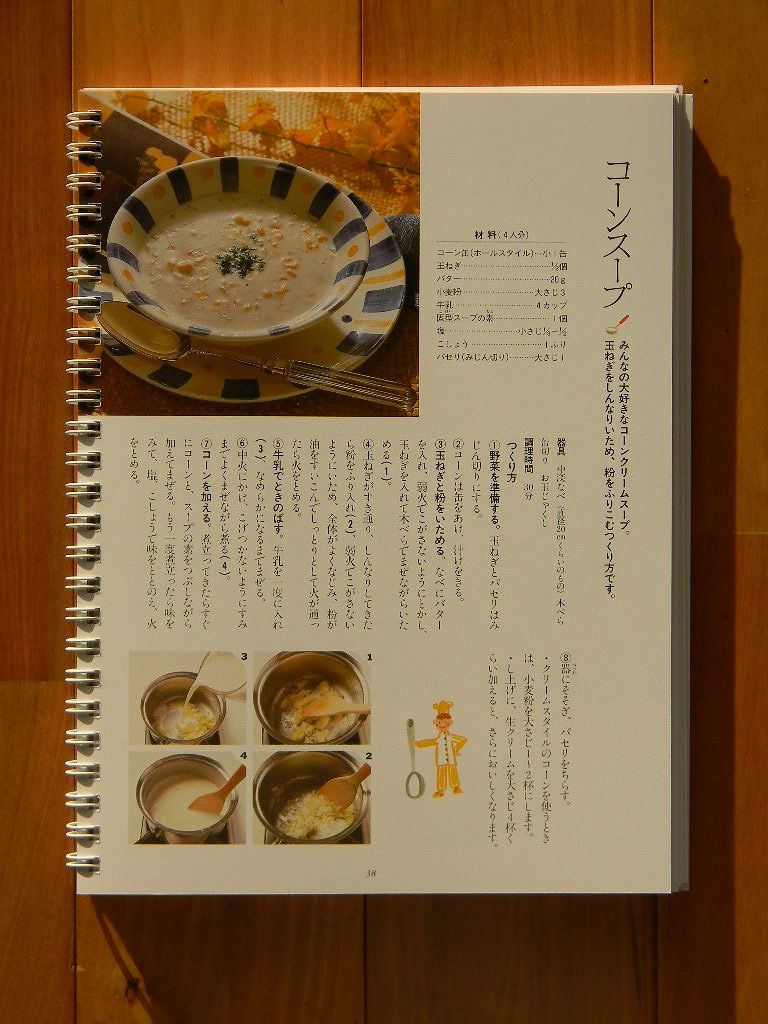 コーンスープ
みんなの大好きなコーンクリームスープ。
玉ねぎをしんなりいため、粉をふりこむつくり方です。
材料(4人分)
コーン缶(ホールスタイル)…小1缶
玉ねぎ……½個
バター……20g
小麦粉……大さじ3
牛乳……4カップ
固型スープの素……1個
塩……小さじ
こしょう……1ふり
パセリ(みじん切り)……大さじ1
器具 中深なべ(直径20cmくらいのもの) 木べら
缶切り お玉じゃくし
調理時間 30分
つくり方
①野菜を準備する。玉ねぎとパセリはみ
じん切りにする。
②コーンは缶をあけ、汁けをきる。
③玉ねぎと粉をいためる。なべにバター
を入れ、弱火でこがさないようにとかし、
玉ねぎを入れて木べらでまぜながらいた
める(1)。
④玉ねぎがすき通り、しんなりしてきた
ら粉をふり入れ(2)、弱火でこがさない
ようにいため、全体がよくなじみ、粉が
油をすいこんでしっとりとして火が通っ
たら火をとめる。
⑤牛乳でときのばす。牛乳を一度に入れ
(3)、なめらかになるまでまぜる。
⑥中火にかけ、こげつかないようにすみ
までよくまぜながら煮る(4)。
⑦コーンを加える。煮立ってきたらすぐ
にコーンと、スープの素をつぶしながら
加えてまぜる。もう一度煮立ったら味を
みて、塩、こしょうで味をととのえ、火
をとめる。
⑧器にそそぎ、パセリをちらす。
・クリームスタイルのコーンを使うとき
は、小麦粉を大さじ1〜2杯にします。
・し上げに、生クリームを大さじ4杯く
らい加えると、さらにおいしくなります。
1
2
3
4
38